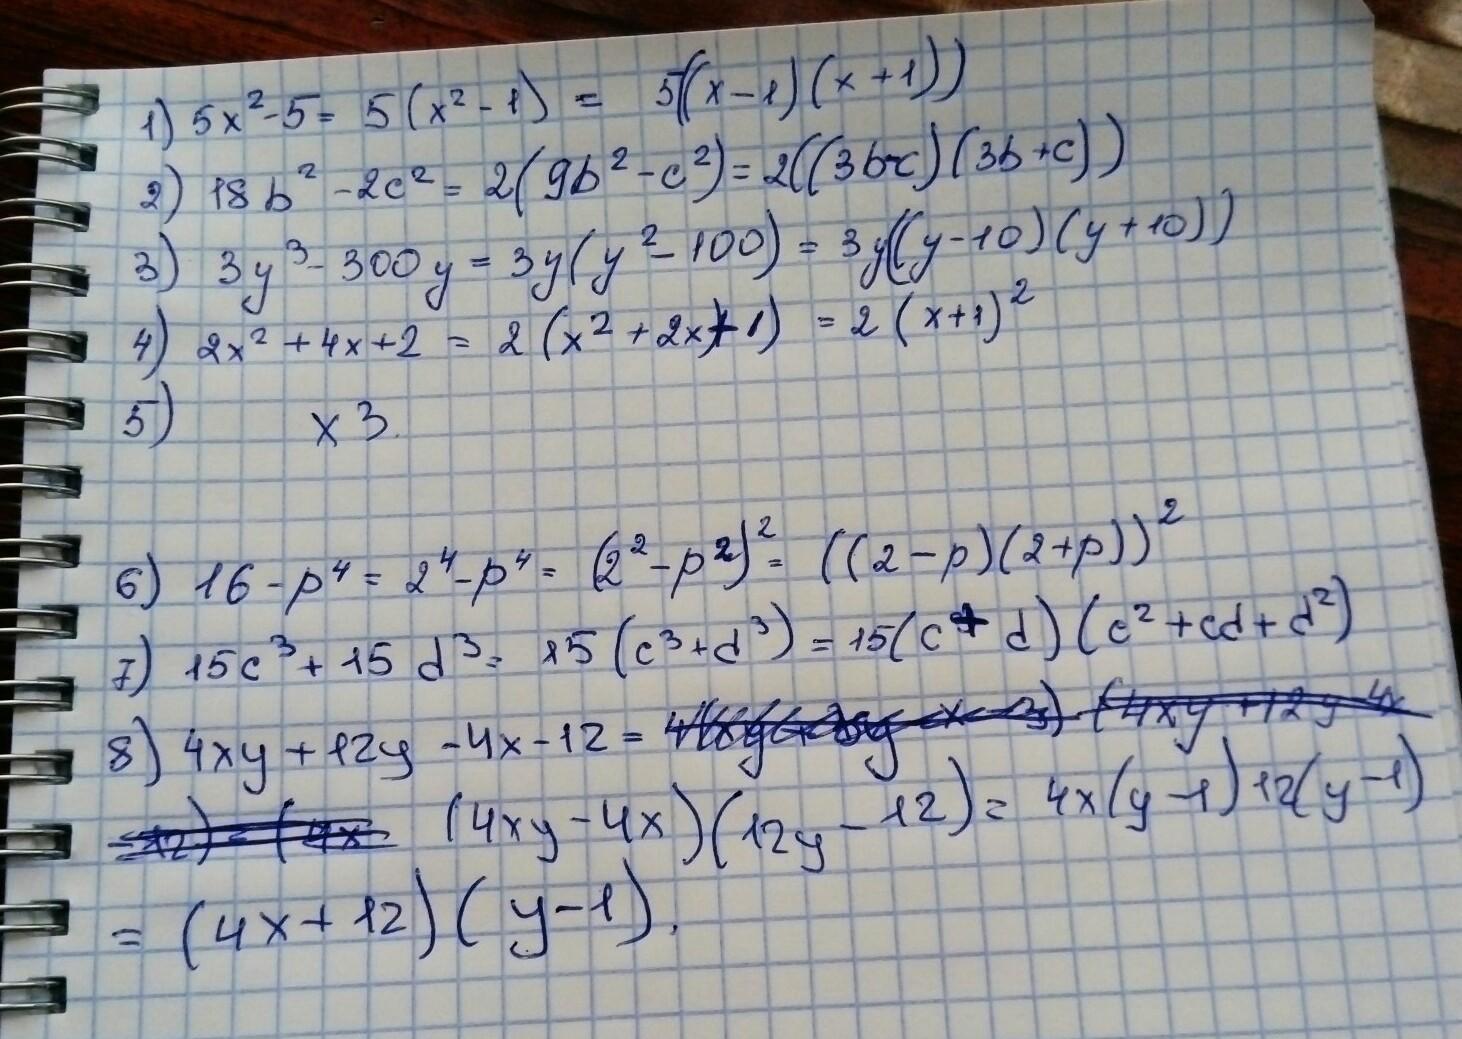 1) 5x² - 5 = 5(x² - 1) = 5((x - 1)(x + 1))
2) 18b² - 2c² = 2(9b² - c²) = 2((3b-c)(3b + c))
3) 3y³ - 300y = 3y(y² - 100) = 3y((y - 10)(y + 10))
4) 2x² + 4x + 2 = 2(x² + 2x + 1) = 2(x+1)²
5) x3.
6) 16 - p⁴ = 2⁴ - p⁴ = (2² - p²)² = ((2 - p)(2 + p))²
7) 15c³ + 15d³ = 15(c³ + d³) = 15(c + d)(c² + cd + d²)
8) 4xy + 12y - 4x - 12 = (4xy + 12y 4x
(4xy - 4x)(12y - 12) = 4x(y - 1)12(y - 1)
= (4x + 12)(y - 1).